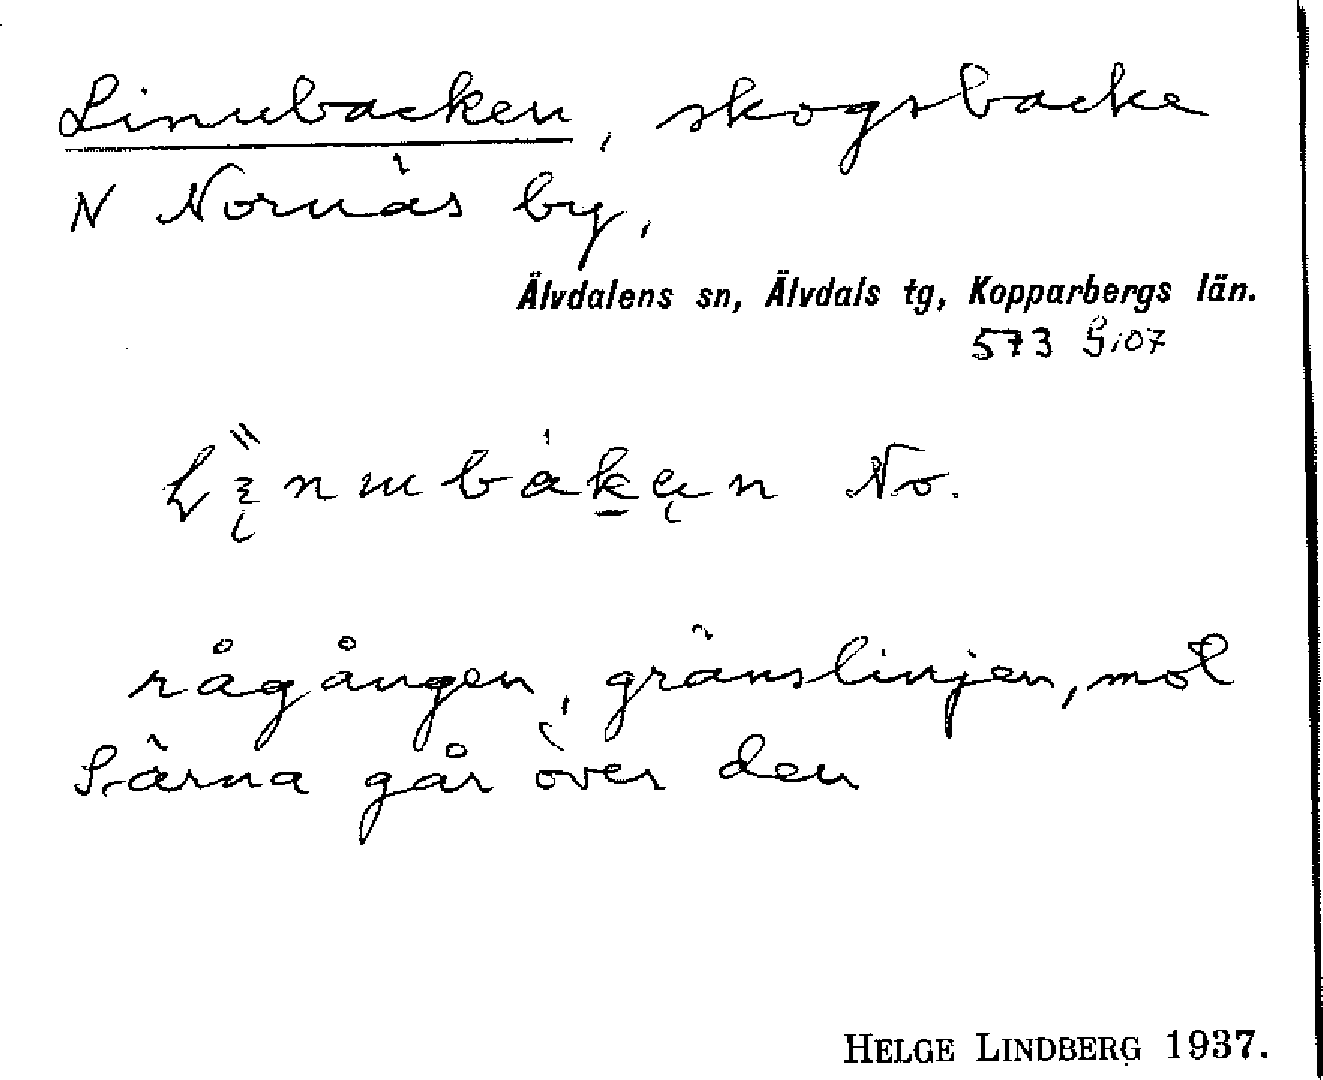 Linnbacken, skogsbacke
N Nornäs by,
Älvdalens sn, Älvdals tg, Kopparbergs län.
573
No.
rågången, gränslinjen, mot
Särna går över den
HELGE LINDBERG 1937.